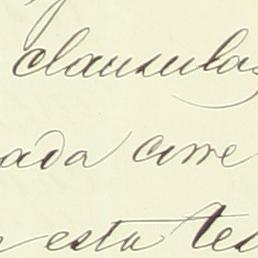 clausulas
ada corre
esta tes